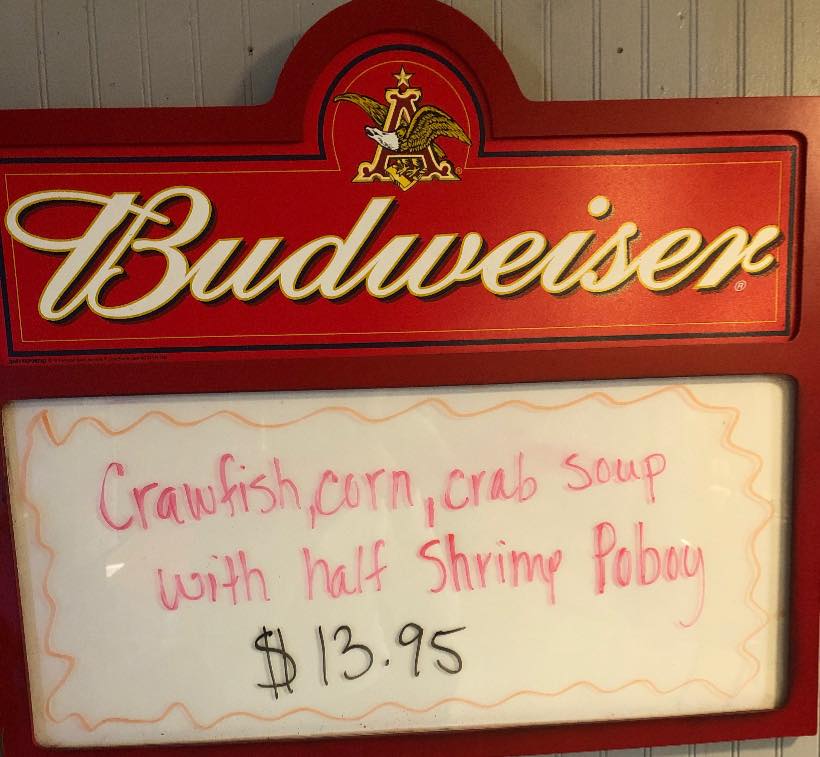 A
Budweiser®
Crawfish, corn, crab soup
with half Shrimp Poboy
$13.95